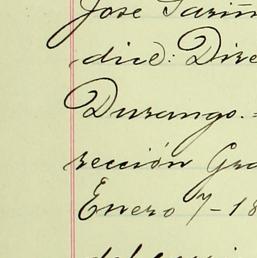 José Fariñ
dice: Dire
Durango.=
rección Gra
Enero 7-18